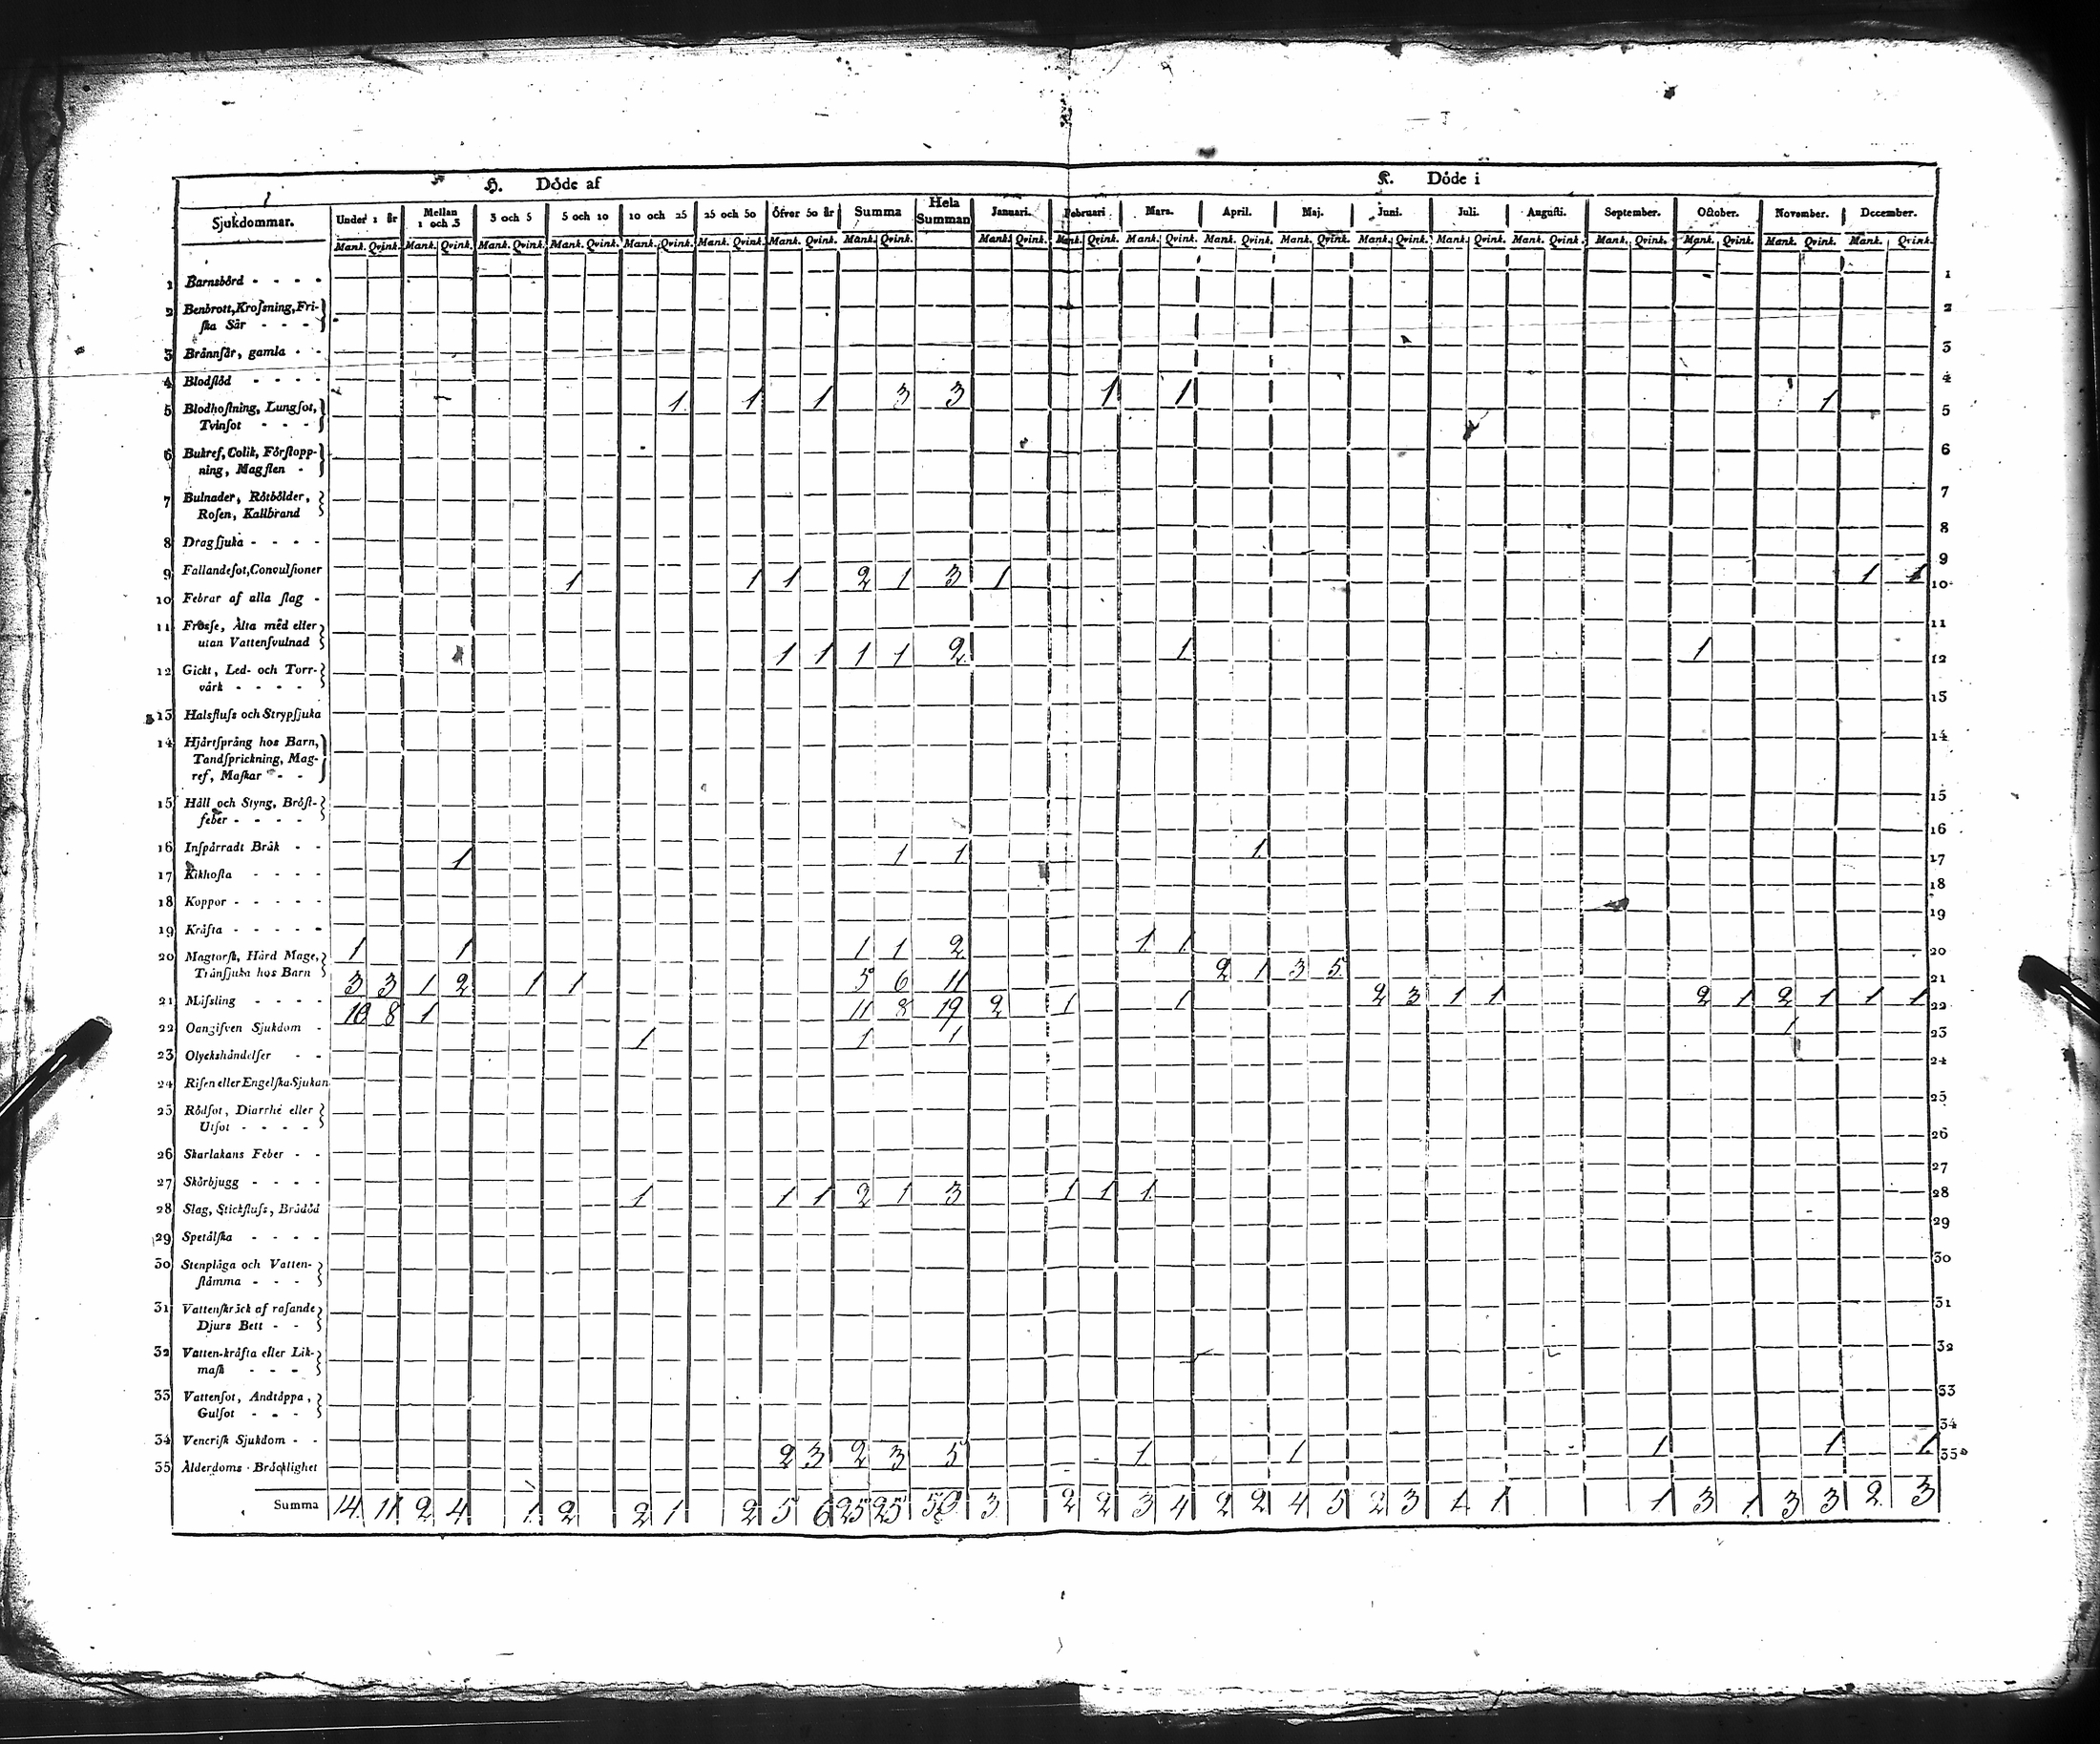 H. Döde af K. Döde i
Sjukdommar. Under 1 år Mellan 1 och 3 3 och 5 5 och 10 10 och 25 25 och 50 Öfver 50 år Summa Hela Summan Januari. Februari. Mars. April. Maj. Juni. Juli. Augusti. September. October. November. December.
Mank. Qvink. Mank. Qvink. Mank. Qvink. Mank. Qvink. Mank. Qvink. Mank. Qvink. Mank. Qvink. Mank. Qvink. Mank. Qvink. Mank. Qvink. Mank. Qvink. Mank. Qvink. Mank. Qvink. Mank. Qvink. Mank. Qvink. Mank. Qvink. Mank. Qvink. Mank. Qvink. Mank. Qvink. Mank. Qvink.
1 Barnsbörd - - - - 1
2 Benbrott, Krossning, Fri-
ska Sår - - - 2
3 Brännsår, gamla - - 3
4 Blodflöd - - - - 4
5 Blodhostning, Lungsot,
Tvinsot - - - 1 1 1 3 3 1 1 1 5
6 Bukref, Colik, Förstopp-
ning, Magsten - 6
7 Bulnader, Rötbölder,
Rosen, Kallbrand 7
8 Dragsjuka - - - - 8
9 Fallandesot, Convulsioner 9
10 Febrar af alla slag - 1 1 1 2 1 3 1 1 1 10
11 Frosse, Älta med eller
utan Vattensvulnad 11
12 Gickt, Led- och Torr-
värk - - - - 1 1 1 1 2 1 1 12
13 Halsfluss och Strypsjuka 13
14 Hjärtsprång hos Barn,
Tandsprickning, Mag-
ref, Maskar - - 14
15 Håll och Styng, Bröst-
feber - - - - 15
16 Inspärradt Bråk - - 16
17 Kikhosta - - - - 1 1 1 1 17
18 Koppor - - - - - 18
19 Kräfta - - - - - 19
20 Magtorsk, Hård Mage,
Tränsjuka hos Barn 1 1 1 1 2 1 1 20
21 Mässling - - - - 3 3 1 2 1 1 5 6 11 2 1 3 5 21
22 Oangifven Sjukdom - 10 8 1 11 8 19 2 1 1 2 3 1 1 2 1 2 1 1 1 22
23 Olyckshändelser - - 1 1 1 1 23
24 Risen eller Engelska Sjukan 24
25 Rödsot, Diarrhé eller
Utsot - - - - 25
26 Skarlakans Feber - - 26
27 Skörbjugg - - - - 27
28 Slag, Stickfluss, Brådöd 1 1 1 2 1 3 1 1 1 28
29 Spetälska - - - - 29
30 Stenplåga och Vatten-
stämma - - - 30
31 Vattenskräck af rasande
Djurs Bett - - 31
32 Vatten-kräfta eller Lik-
mask - - - 32
33 Vattensot, Andtäppa,
Gulsot - - - 33
34 Venerisk Sjukdom - - 34
35 Ålderdoms-Bräcklighet 2 3 2 3 5 1 1 1 1 1 35
Summa 14 11 2 4 1 2 2 1 2 5 6 25 25 50 3 2 2 3 4 2 2 4 5 2 3 1 1 1 3 1 3 3 2 3